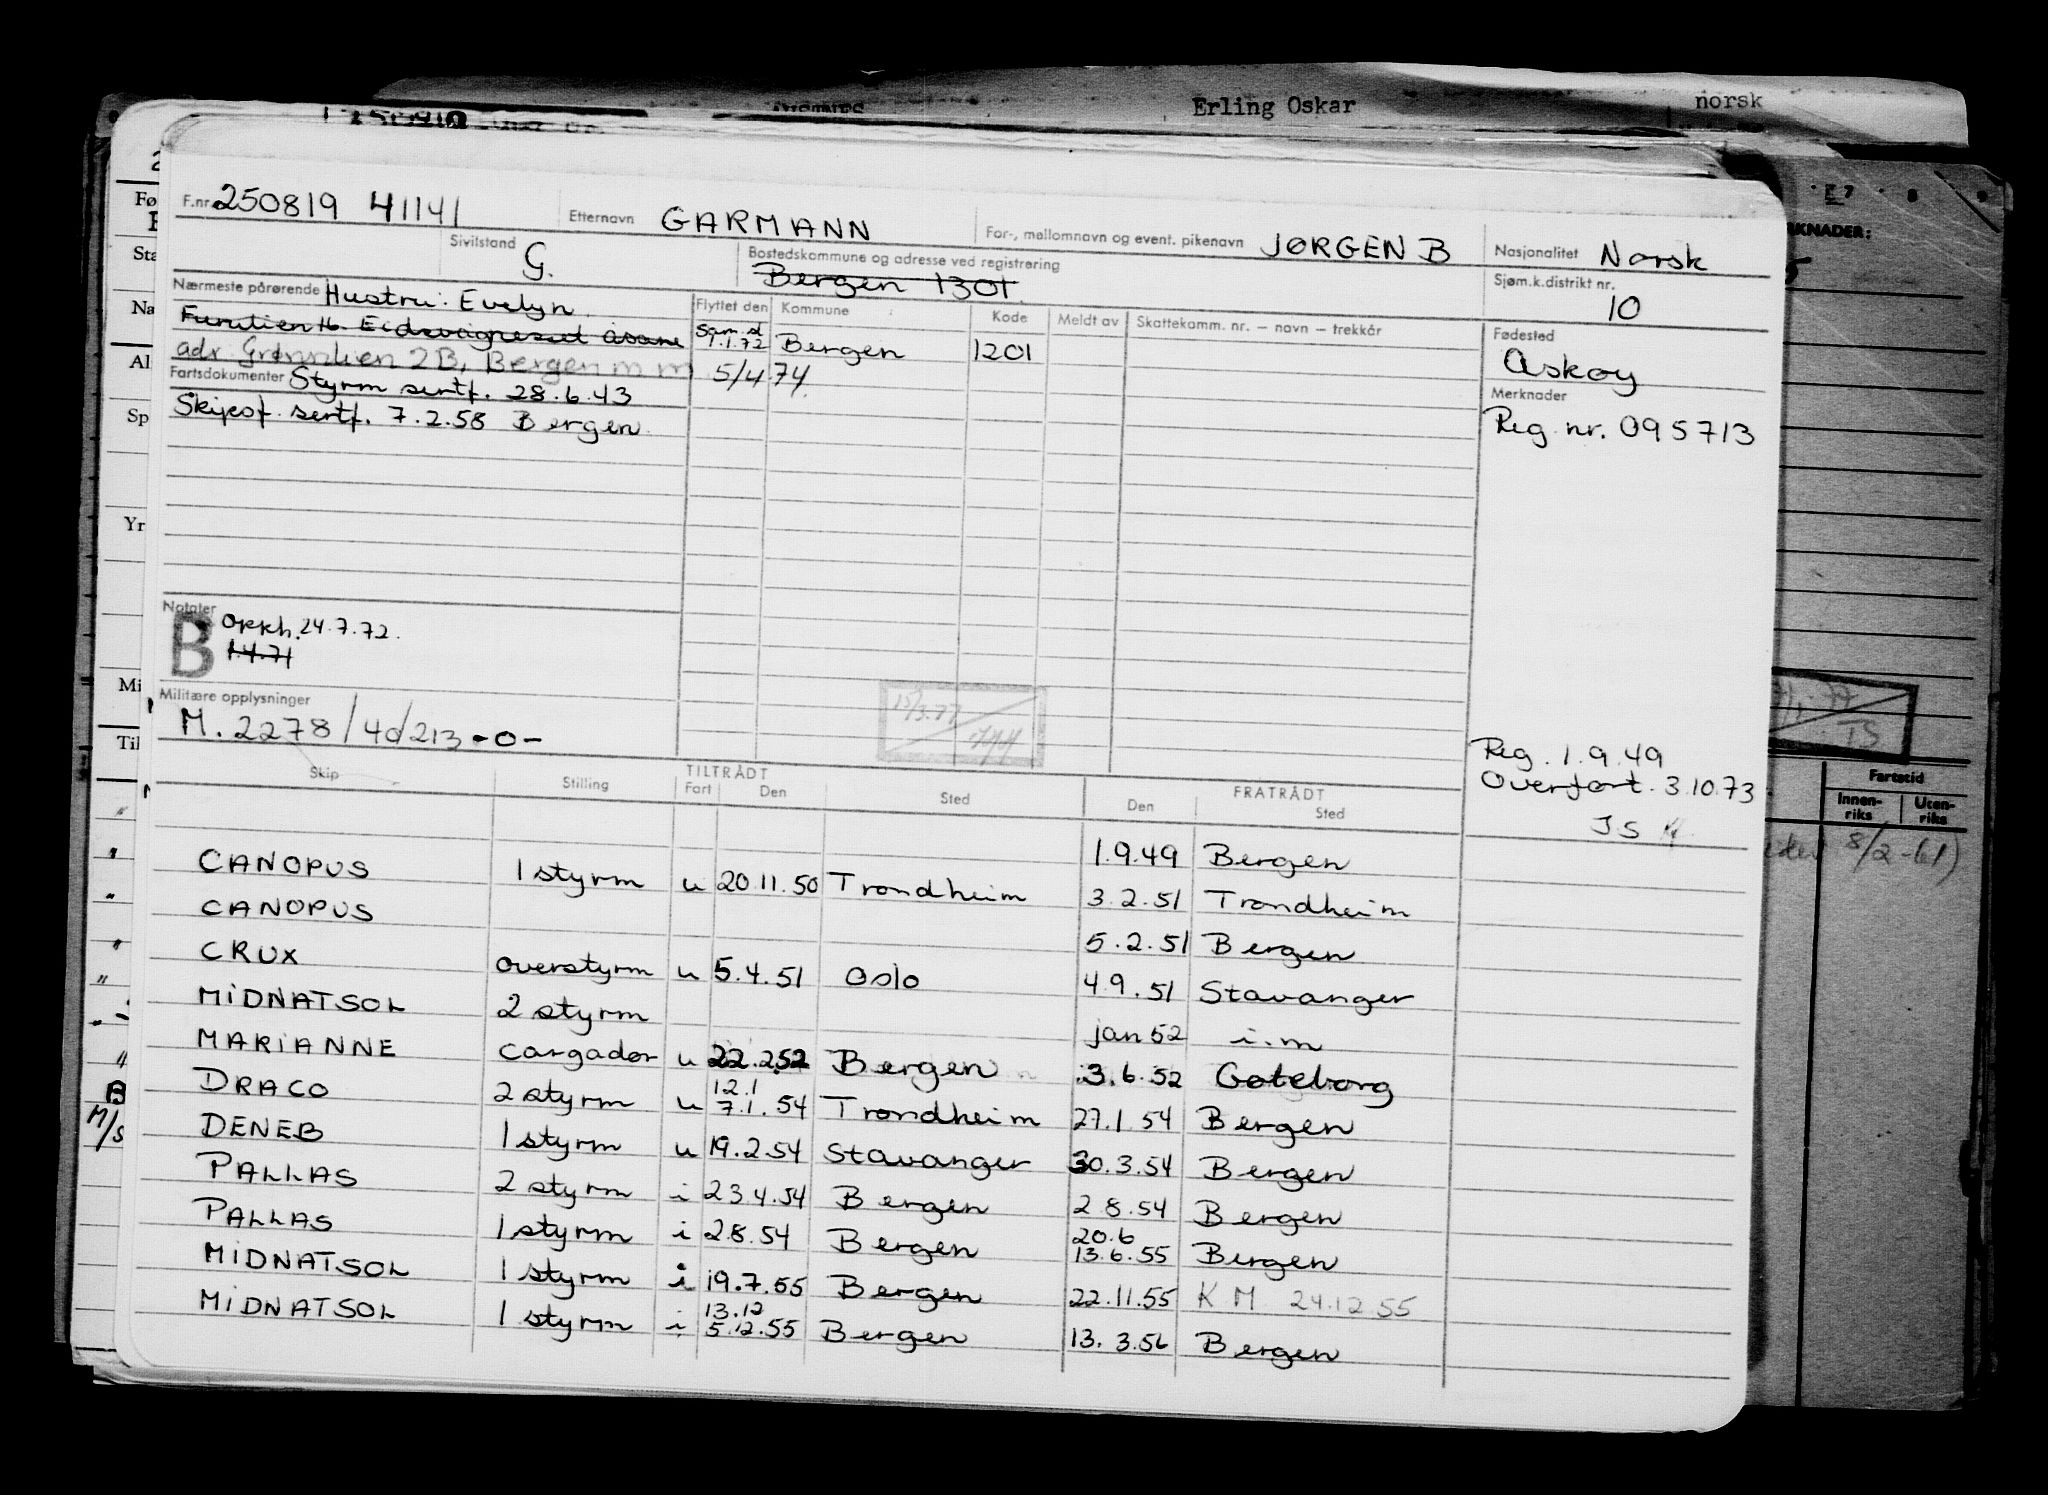 Erling Oskar norsk
F.nr. 250819 41141 Etternavn GARMANN For-, mellomnavn og event. pikenavn JØRGEN B Nasjonalitet Norsk
Sivilstand G. Bostedskommune og adresse ved registrering Bergen 1301 Sjøm.k.distrikt nr. 10
Nærmeste pårørende Hustru: Evelyn Flyttet den Kommune Kode Meldt av Skattekomm. nr. — navn — trekkår Fødested
Sam.sl 1.1.72 Bergen 1201 Askøy
adr. 2B, Bergen 5/4 74
Fartsdokumenter Styrm sertf. 28.6.43 Merknader
Skipsf. sertf. 7.2.58 Bergen Reg. nr. 095713
Notater
B Oppkh. 24.7.72.
1.4.71
Militære opplysninger
M. 2278/4d/213 -0-
15/3.77
Reg. 1.9.49
Overført. 3.10.73
JS
Skip Stilling TILTRÅDT Fart Den Sted FRATRÅDT Den Sted
1.9.49 Bergen
CANOPUS 1 styrm u 20.11.50 Trondheim 3.2.51 Trondheim
CANOPUS 5.2.51 Bergen
CRUX overstyrm u 5.4.51 Oslo 4.9.51 Stavanger
MIDNATSOL 2 styrm jan 52 i.m
MARIANNE Cargadør u 22.2.52 Bergen 3.6.52 Gøteborg
DRACO 2 styrm u 12.1 7.1.54 Trondheim 27.1.54 Bergen
DENEB 1 styrm u 19.2.54 Stavanger 30.3.54 Bergen
PALLAS 2 styrm i 23.4.54 Bergen 2.8.54 Bergen
PALLAS 1 styrm i 2.8.54 Bergen 20.6 13.6.55 Bergen
MIDNATSOL 1 styrm i 19.7.55 Bergen 22.11.55 K M 24.12.55
MIDNATSOL 1 styrm i 13.12 5.12.55 Bergen 13.3.56 Bergen
Fartstid
Innen-riks Uten-riks
8/2-61)
M/S